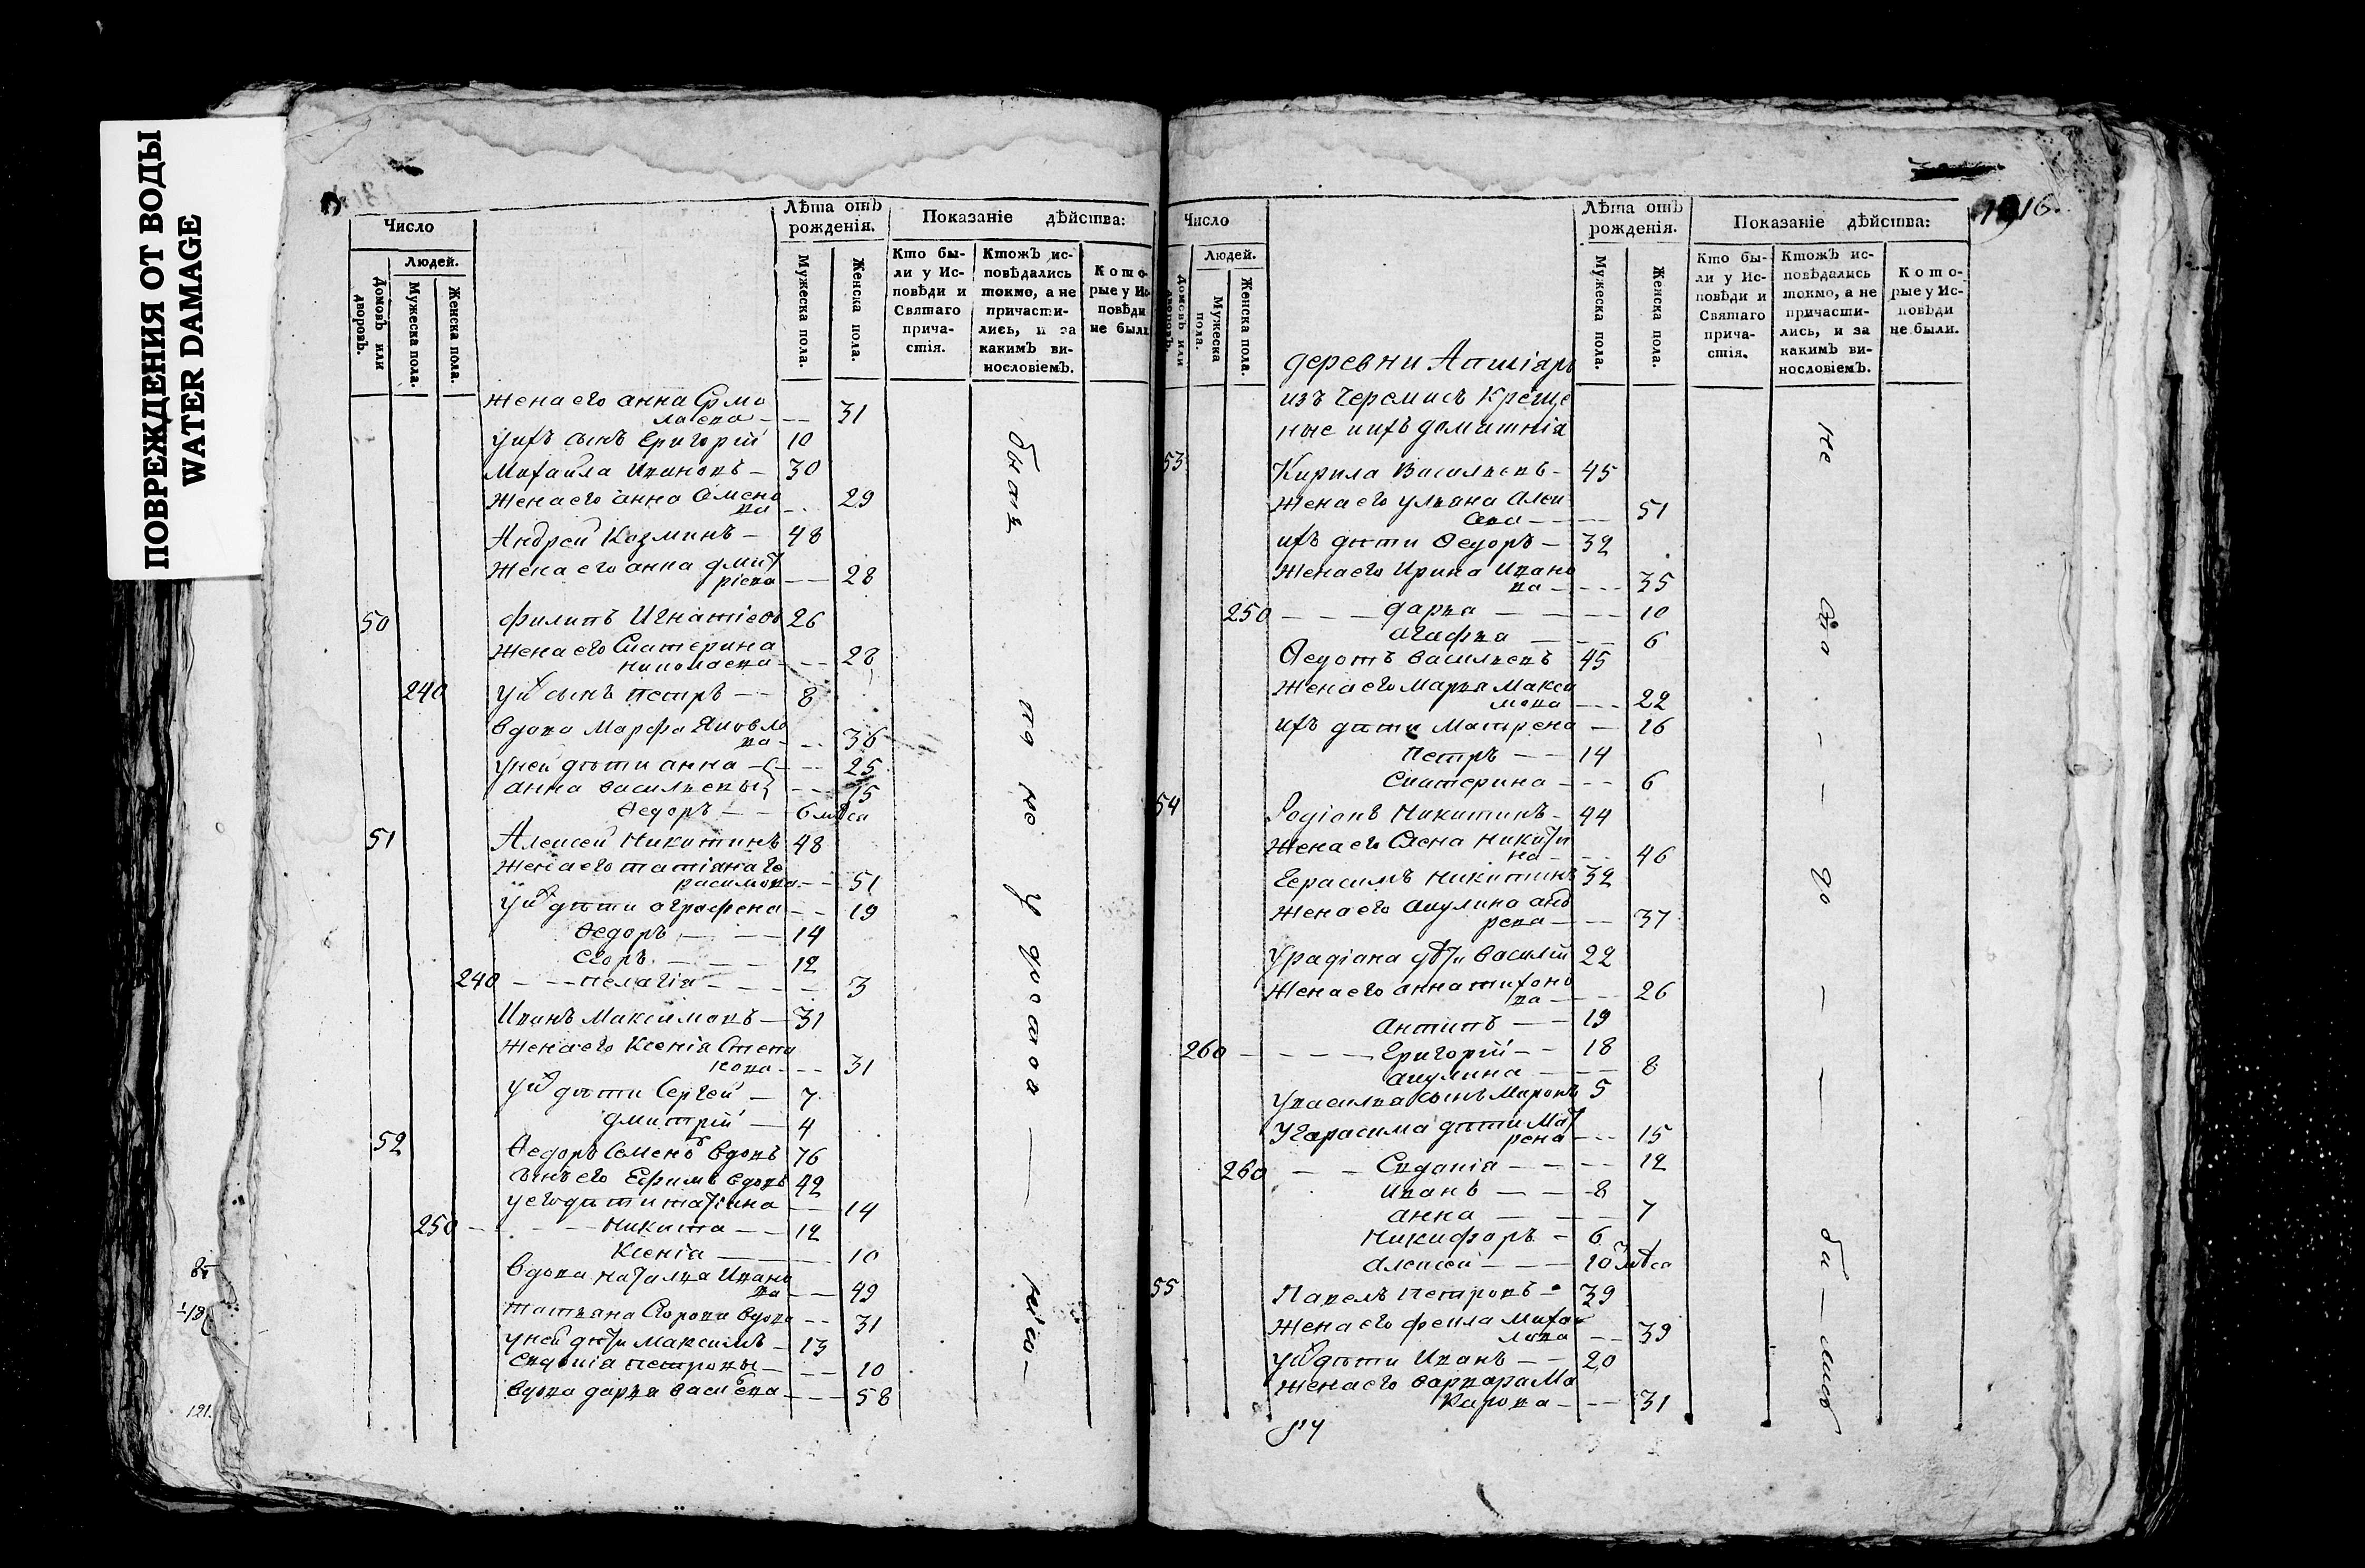 ПОВРЕЖДЕНИЯ ОТ ВОДЫ
WATER DAMAGE
Число
Лѣта отъ рожденія.
Показаніе дѣйства:
Домовъ или дворовъ.
Людей.
Мужеска пола.
Женска пола.
Мужеска пола.
Женска пола.
Кто были у Исповѣди и Святаго причастія.
Ктожъ исповѣдались токмо, а не причастились, и за какимъ винословіемъ.
Которые у Исповѣди не были
Жена его анна Ермо
лаева - -- 31
у ихъ сынъ Григорій 10
Михаила Ивановъ - 30
Жена его анна Семено
ва - -- 29
Андрей Козминъ - 48
Жена его анна дмит
ріева -- 28
50 филипъ Игнатіевъ 26
Жена его Екатерина
николаева - -- 28
240 у их сынъ петръ -- 8
вдова Марфа Яковле
ва - -- 36
у ней дѣти анна - -- 25
анна васильевы -- 15
Ѳедоръ -- 6 мѣся
51 Алексей Никитинъ 48
Жена его татіана Ге
расимова -- 51
у их дѣти аграфена -- 19
Ѳедоръ -- 14
Егоръ -- 12
240 -- пелагія -- 3
Иванъ Максимовъ - 31
Жена его Ксенія Степа
нова -- 31
у их дѣти Сергей - 7
дмитрій - 4
52 Ѳедоръ Семеновъ вдовъ 76
сынъ его Ефимъ вдовъ 42
у его дѣти татіана -- 14
250 -- Никита -- 12
Ксенія -- 10
вдова наталья Ивано
ва -- 49
татьяна Егорова вдова -- 31
у ней дѣти Максимъ - 13
Евдокія петровы -- 10
вдова дарья васильева -- 58
быаъ
по не
Число
Лѣта отъ рожденія.
Показаніе дѣйства:
Домовъ или дворовъ.
Людей.
Мужеска пола.
Женска пола.
Мужеска пола.
Женска пола.
Кто были у Исповѣди и Святаго причастія.
Ктожъ исповѣдались токмо, а не причастились, и за какимъ винословіемъ.
Которые у Исповѣди не были.
16.
деревни Апшіаръ
изъ черемисъ креще
ные и ихъ домашнія
53 Кирила Васильевъ - 45
Жена его ульяна Алек
сева -- 51
ихъ дѣти Ѳедоръ - 32
Жена его Ирина Ивано
ва -- 35
250 -- дарья -- 10
агафья -- 6
Ѳедотъ васильевъ 45
Жена его Марья Макси
мова -- 22
ихъ дѣти Матрена - 16
петръ -- 14
Екатерина -- 6
54 Родіонъ Никитинъ - 44
Жена его Елена Никити
на -- 46
Герасимъ Никитинъ 32
Жена его акулина анд
реева -- 37
у радіона дѣти василій 22
Жена его анна тихоно
ва -- 26
Антипъ -- 19
260 -- Григорій -- 18
акулина -- 8
у василья сынъ Миронъ 5
у Герасима дѣти Мат
рена -- 15
260 -- Евдокія -- 12
Иванъ -- 8
анна -- 7
Никифоръ - 6
алексей -- 10 мѣся
55 Павелъ петровъ - 39
Жена его фекла Михай
лова -- 39
у их дѣти Иванъ -- 20
Жена его варвара Ма
карова -- 31
не
до
121.